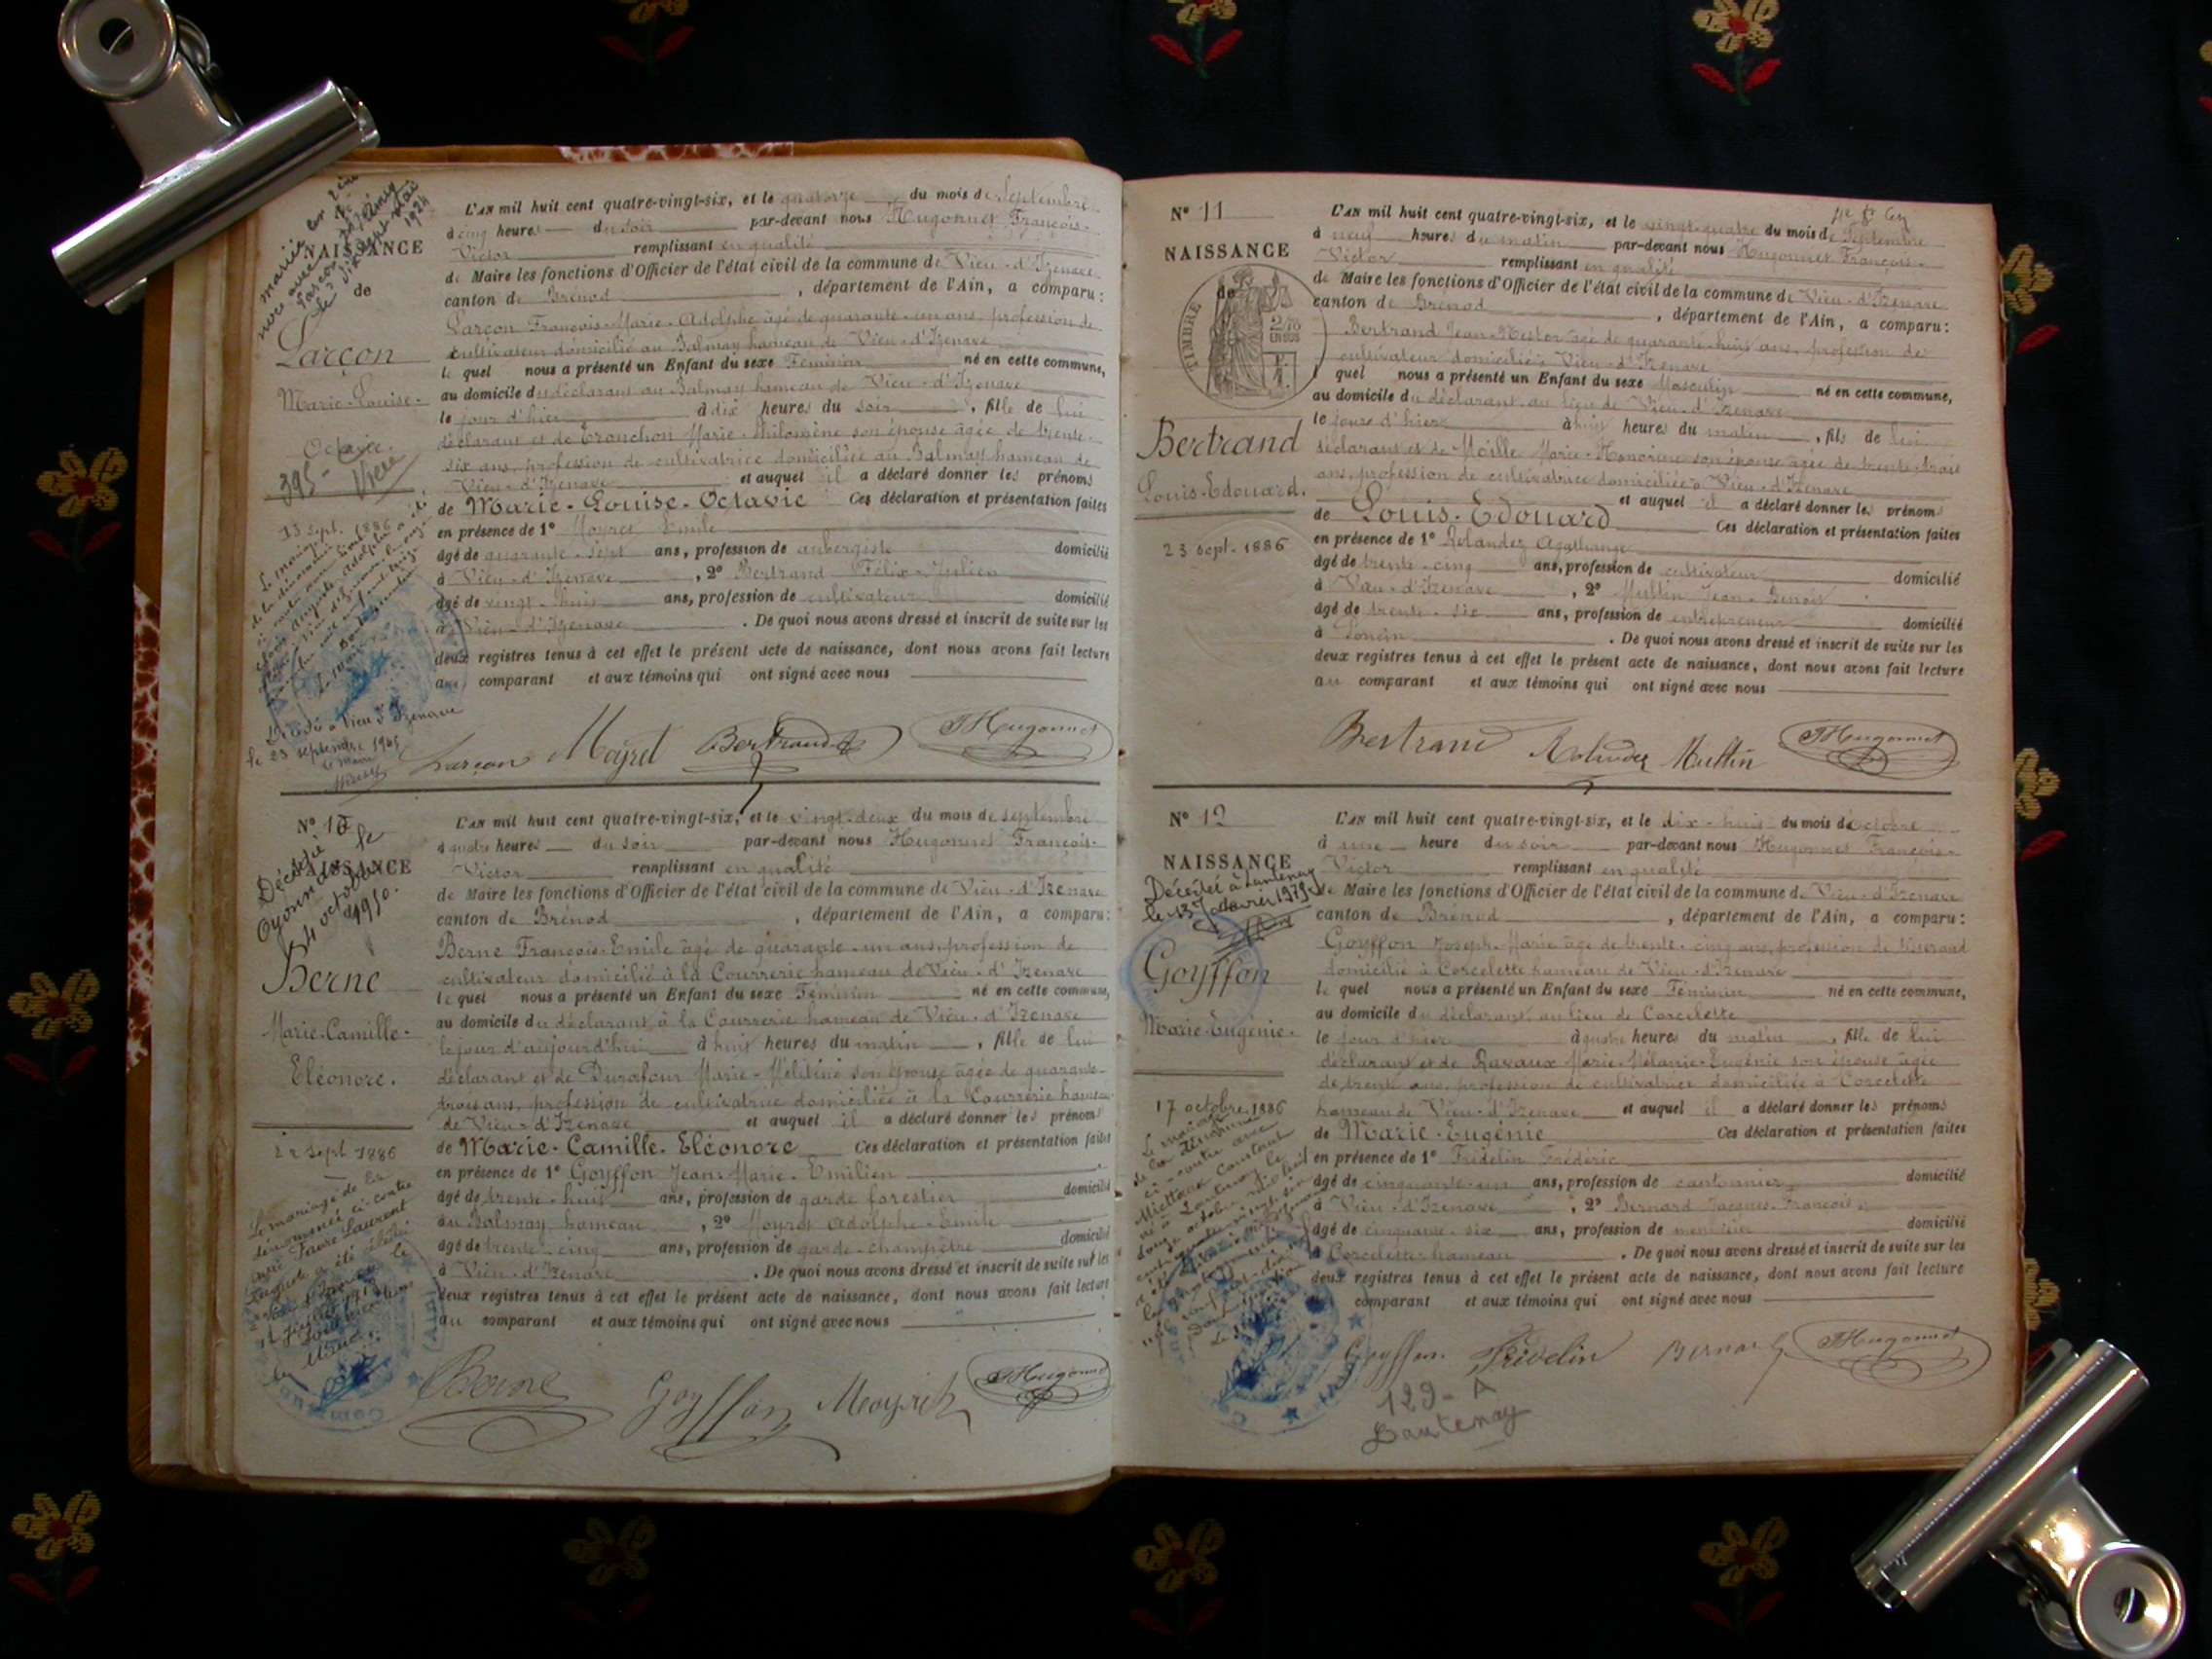 NAISSANCE
de
Larçon
Marie-Louise-
Octavie.
395 - Vieu
13 sept. 1886
Décédée à Vieu d'Izenave
le 23 septembre
L'AN mil huit cent quatre-vingt-six, et le quatorze du mois de Septembre
à cinq heures du soir par-devant nous Hugonnet François-
Victor remplissant en qualité
de Maire les fonctions d'Officier de l'état civil de la commune de Vieu-d'Izenave
canton de Brénod, département de l'Ain, a comparu:
Larçon François-Marie-Adolphe âgé de quarante-un ans, profession de
cultivateur domicilié au Balmay hameau de Vieu-d'Izenave
lequel nous a présenté un Enfant du sexe Féminin né en cette commune,
au domicile du déclarant au Balmay hameau de Vieu-d'Izenave
le jour d'hier à dix heures du soir, fille de lui
déclarant et de Tronchon Marie-Philomène son épouse âgée de trente-
six ans, profession de cultivatrice domiciliée au Balmay hameau de
Vieu-d'Izenave et auquel il a déclaré donner les prénoms
de Marie-Louise-Octavie Ces déclaration et présentation faites
en présence de 1° Moyret Emile
âgé de quarante-sept ans, profession de aubergiste domicilié
à Vieu-d'Izenave, 2° Bertrand Félix-Julien
âgé de vingt-huit ans, profession de cultivateur domicilié
à Vieu-d'Izenave. De quoi nous avons dressé et inscrit de suite sur les
deux registres tenus à cet effet le présent acte de naissance, dont nous avons fait lecture
au comparant et aux témoins qui ont signé avec nous
Larçon Moyret Bertrand Hugonnet
N° 10
NAISSANCE
Décédée
Oyonnax le
14 octobre
1950.
Berne
Marie-Camille-
Eléonore.
22 sept 1886
Le mariage de la
dénommée ci-contre
avec Favre Laurent
L'AN mil huit cent quatre-vingt-six, et le vingt-deux du mois de septembre
à quatre heures du soir par-devant nous Hugonnet François-
Victor remplissant en qualité
de Maire les fonctions d'Officier de l'état civil de la commune de Vieu-d'Izenave
canton de Brénod, département de l'Ain, a comparu:
Berne François-Emile âgé de quarante-un ans, profession de
cultivateur domicilié à la Courrerie hameau de Vieu-d'Izenave
lequel nous a présenté un Enfant du sexe Féminin né en cette commune,
au domicile du déclarant à la Courrerie hameau de Vieu-d'Izenave
le jour d'aujourd'hui à huit heures du matin, fille de lui
déclarant et de Durafour Marie-Mélitine son épouse âgée de quarante-
trois ans, profession de cultivatrice domiciliée à la Courrerie hameau
de Vieu-d'Izenave et auquel il a déclaré donner les prénoms
de Marie-Camille-Eléonore Ces déclaration et présentation faites
en présence de 1° Goyffon Jean-Marie-Emilien
âgé de trente-huit ans, profession de garde forestier domicilié
au Balmay hameau, 2° Moyret Adolphe-Emile
âgé de trente-cinq ans, profession de garde-champêtre domicilié
à Vieu-d'Izenave. De quoi nous avons dressé et inscrit de suite sur les
deux registres tenus à cet effet le présent acte de naissance, dont nous avons fait lecture
au comparant et aux témoins qui ont signé avec nous
Berne Goyffon Moyret Hugonnet
N° 11
NAISSANCE
de
TIMBRE
2/10
EN SUS
Bertrand
Louis-Edouard.
23 sept. 1886
L'AN mil huit cent quatre-vingt-six, et le vingt-quatre du mois de Septembre
à neuf heures du matin par-devant nous Hugonnet François-
Victor remplissant en qualité
de Maire les fonctions d'Officier de l'état civil de la commune de Vieu-d'Izenave
canton de Brénod, département de l'Ain, a comparu:
Bertrand Jean-Nestor âgé de quarante-huit ans, profession de
cultivateur domicilié à Vieu-d'Izenave
lequel nous a présenté un Enfant du sexe Masculin né en cette commune,
au domicile du déclarant au lieu de Vieu-d'Izenave
le jour d'hier à huit heures du matin, fils de lui
déclarant et de Moille Marie-Honorine son épouse âgée de trente-trois
ans, profession de cultivatrice domiciliée à Vieu-d'Izenave
et auquel il a déclaré donner les prénoms
de Louis-Edouard Ces déclaration et présentation faites
en présence de 1° Rolandez Agathange
âgé de trente-cinq ans, profession de cultivateur domicilié
à Vieu-d'Izenave, 2° Multin Jean-Benoit
âgé de trente-six ans, profession de entrepreneur domicilié
à Poncin. De quoi nous avons dressé et inscrit de suite sur les
deux registres tenus à cet effet le présent acte de naissance, dont nous avons fait lecture
au comparant et aux témoins qui ont signé avec nous
Bertrand Rolandez Multin Hugonnet
N° 12
NAISSANCE
Décédée à Lantenay
Goyffon
Marie-Eugénie-
17 octobre 1886
Le mariage
de la dénommée
ci-contre avec
L'AN mil huit cent quatre-vingt-six, et le dix-huit du mois de octobre
à une heure du soir par-devant nous Hugonnet François-
Victor remplissant en qualité
de Maire les fonctions d'Officier de l'état civil de la commune de Vieu-d'Izenave
canton de Brénod, département de l'Ain, a comparu:
Goyffon Joseph-Marie âgé de trente-cinq ans, profession de tisserand
domicilié à Corcelette hameau de Vieu-d'Izenave
lequel nous a présenté un Enfant du sexe Féminin né en cette commune,
au domicile du déclarant au lieu de Corcelette
le jour d'hier à quatre heures du matin, fille de lui
déclarant et de Ravaux Marie-Mélanie-Eugénie son épouse âgée
de trente ans, profession de cultivatrice domiciliée à Corcelette
hameau de Vieu-d'Izenave et auquel il a déclaré donner les prénoms
de Marie-Eugénie Ces déclaration et présentation faites
en présence de 1° Fridelin Frédéric
âgé de cinquante-un ans, profession de cantonnier domicilié
à Vieu-d'Izenave, 2° Bernard Jacques-François
âgé de cinquante-six ans, profession de domicilié
à Corcelette hameau. De quoi nous avons dressé et inscrit de suite sur les
deux registres tenus à cet effet le présent acte de naissance, dont nous avons fait lecture
comparant et aux témoins qui ont signé avec nous
Goyffon Fridelin Bernard Hugonnet
129 - A
Lantenay